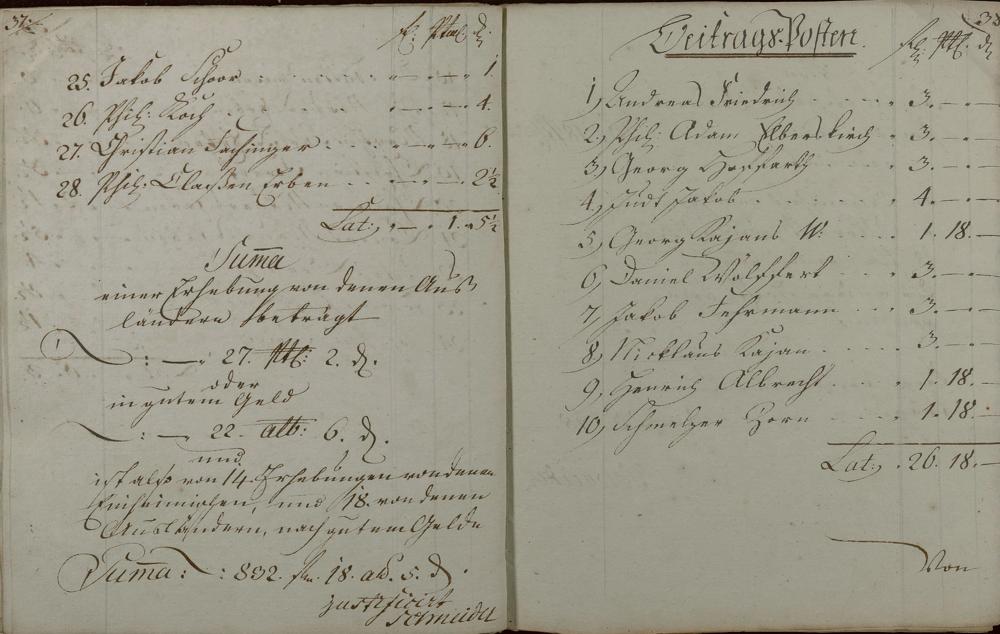 37
fl. Btl. d.
25. Jakob Schoor . . . — . — 1.
26. Phil: Koch . . . — . — 4.
27. Christian Fechinger . . . — . — 6.
28. Phil: Claessen Erben . . . — . — 2½
Lat: . — . 1. 5½
Suma
einer Erhebung von denen Aus
ländern beträgt
: — . 27. Btl: 2. d.
oder
in gutem Geld
: — 22. alb: 6. d.
und
ist also von 14. Erhebungen von denen
Einheimischen, und 18. von denen
Ausländern, nach gutem Gelde
Suma: : 832. fl. 18. alb. 5. d.
justificirt
Schneider
38
Beitrags-Posten.
fl. Btl. d.
1, Andreas Friedrich . . . 3. — . —
2, Phil: Adam Elberskirch . 3. — . —
3, Georg Hoffarth . . . 3. — . —
4, Judt Jakob . . . 4. — . —
5, Georg Kajans W: . . . 1. 18. —
6, Daniel Wolffert . . . 3. — . —
7, Jakob Fehrmann . . . 3. — . —
8, Nicklaus Kajan . . . 3. — . —
9, Henrich Albrecht . . . 1. 18. —
10, Schmelzer Horn . . . 1. 18. —
Lat: . 26. 18. —
Von